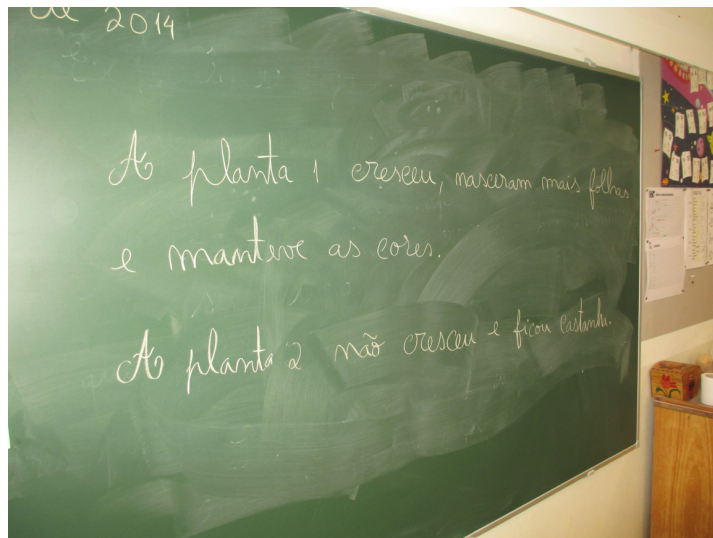 de 2014
A planta 1 cresceu, nasceram mais folhas
e manteve as cores.
A planta 2 não cresceu e ficou castanha.